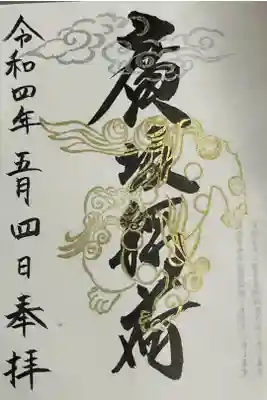 廣坂稲荷
令和四年 五月四日 奉拝